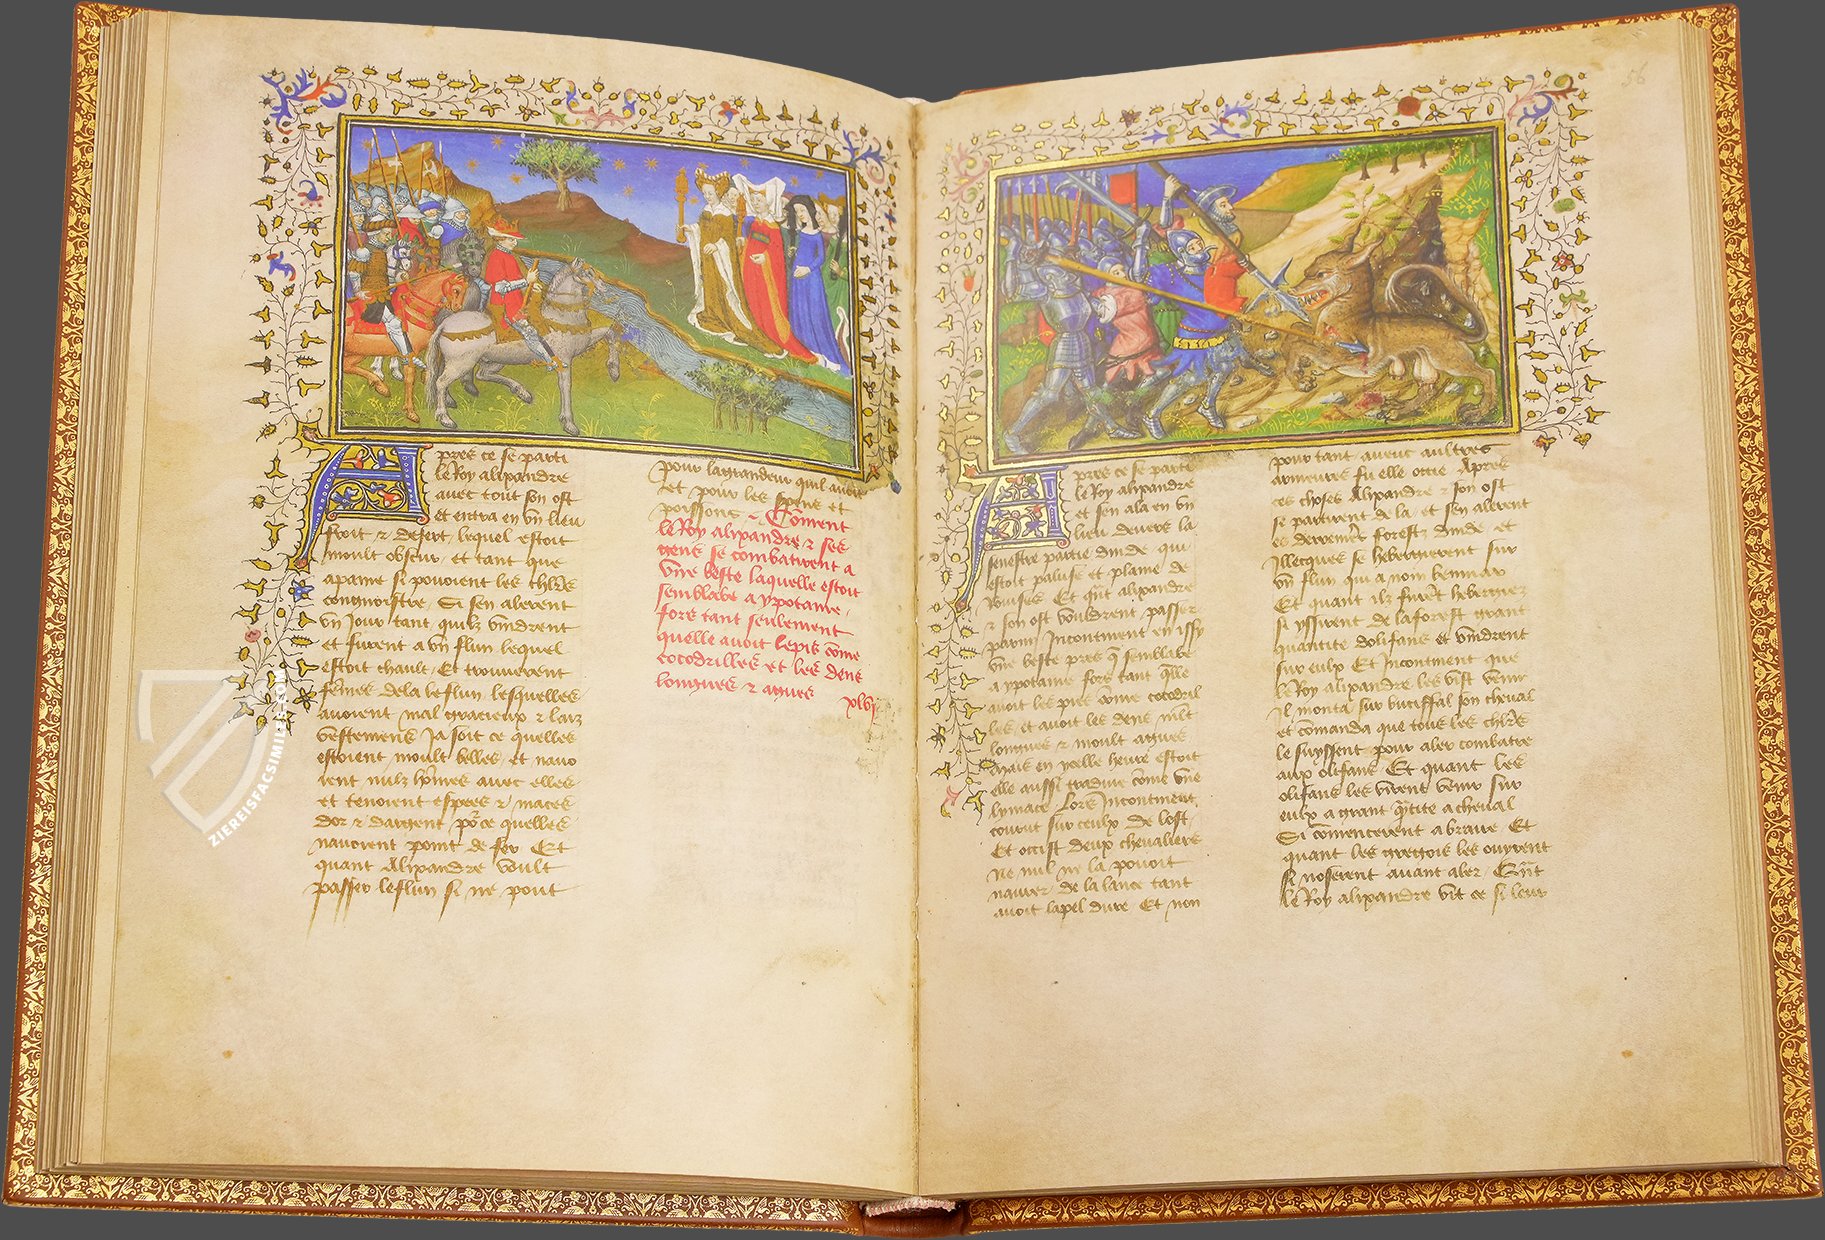 Apres ce se parti
le Roy alixandre
avec tout son ost
et entra en vn lieu
froit & desert lequel estoit
moult obscur et tant que
apaine si povoient les chlrs
congnoistre. Si sen alerent
vn Jour tant quilz vindrent
et furent a vn flun lequel
estoit chault. Et trouverent
fēmes dela le flun lesquelles
avoient mal gracieux & laiz
vestemens Ja soit ce quelles
estoient moult belles et navo
ient nulz hōmes avec elles
et tenoient espees & maces
dor & dargent po'ce quelles
navoient point de fer Et
quant Alixandre voult
passer le flun si ne pout
pour la grandeur quil avoit
et pour les et
poissons Cōment
le Roy alixandre & ses
gens se combatirent a
vne beste laquelle estoit
semblable a ypotame.
fors tant seulement
quelle avoit le pis cōme
cocodrilles et les dens
longues & agues
xlvj
56
Apres ce se parti
le Roy alixandre
et sen ala en vn
lieu devers la
senestre partie dinde qui
estoit palus et plaine de
Et q̄nt alixandre
& son ost vouldrent passer
parmi Incontinent en issy
vne beste pres q̄ semblable
a ypotame fors tant q̄lle
avoit les pis cōme cocodril
les et avoit les dens mlt
longues & moult agues
Mais en ycelle heure estoit
elle aussi tradive cōme vne
lymace Lors Incontinent
courut sur ceulx de lost
Et occist deux chevaliers
Ne nul ne la povoit
navrer de la lance tant
avoit la pel dure Et non
pour tant avec aultres
armeures fu elle occie Apres
ces choses Alixandre & son ost
se partirent de la et sen alerent
es derreines forestz dinde et
Illecques se hebergierent sur
vn flun qui a nom
Et quant ilz furēt hebergiez
si yssirent de la forest grant
quantite dolifans et vindrent
sur eulx Et Incontinent que
le Roy alixandre les vist venir
il monta sur buciffal son cheval
et cōmanda que tous les chlrs
le suyssent pour aler combatre
aux olifans Et quant les
olifans les virent venir sur
eulx a grant q̄ntite a cheval
Si cōmencerent a braire Et
quant les gregois les ouyrent
si noserent avant aler Q̄nt
le Roy alixandre vit ce si leur
ZIEREISFACSIMILES.COM